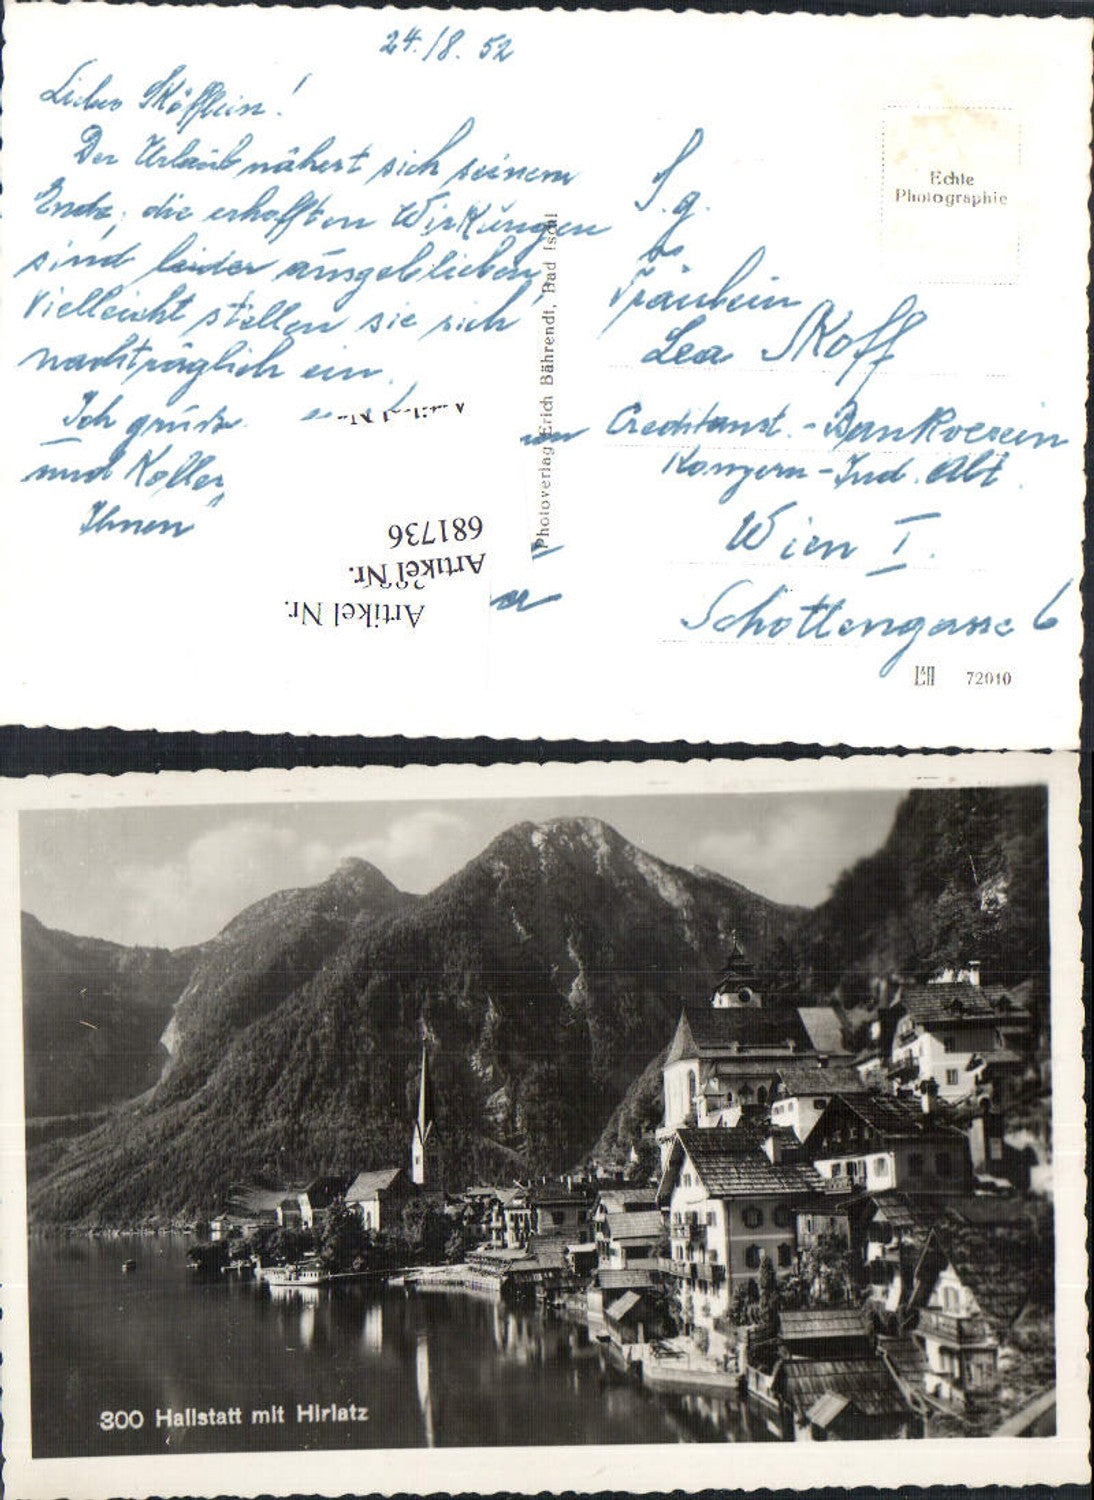 24./8. 52
Liebes Sköfflein!
Der Urlaub nähert sich seinem
Ende, die erhofften Wirkungen
sind leider ausgeblieben,
vielleicht stellen sie sich
nachträglich ein.
Ich grüße
und Koller
Ihnen
Artikel Nr.
681736
Artikel Nr.
Artikel Nr.
Photoverlag Erich Bährendt, Bad Ischl
Echte
Photographie
S. g.
Fräulein
Lea Skoff
Creditanst.-Bankverein
Konzern-Ind. Abt.
Wien I.
Schottengasse 6
72010
300 Hallstatt mit Hirlatz